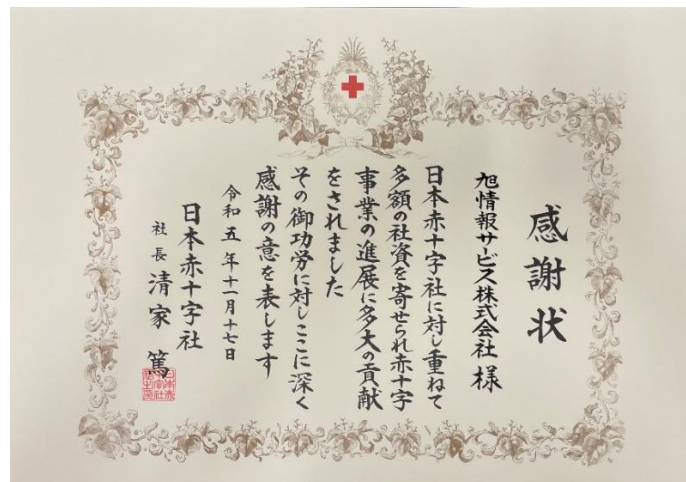 感謝状
旭情報サービス株式会社 様
日本赤十字社に対し重ねて
多額の社資を寄せられ赤十字
事業の進展に多大の貢献
をされました
その御功労に対しここに深く
感謝の意を表します
令和五年十一月十七日
日本赤十字社
社長 清家 篤